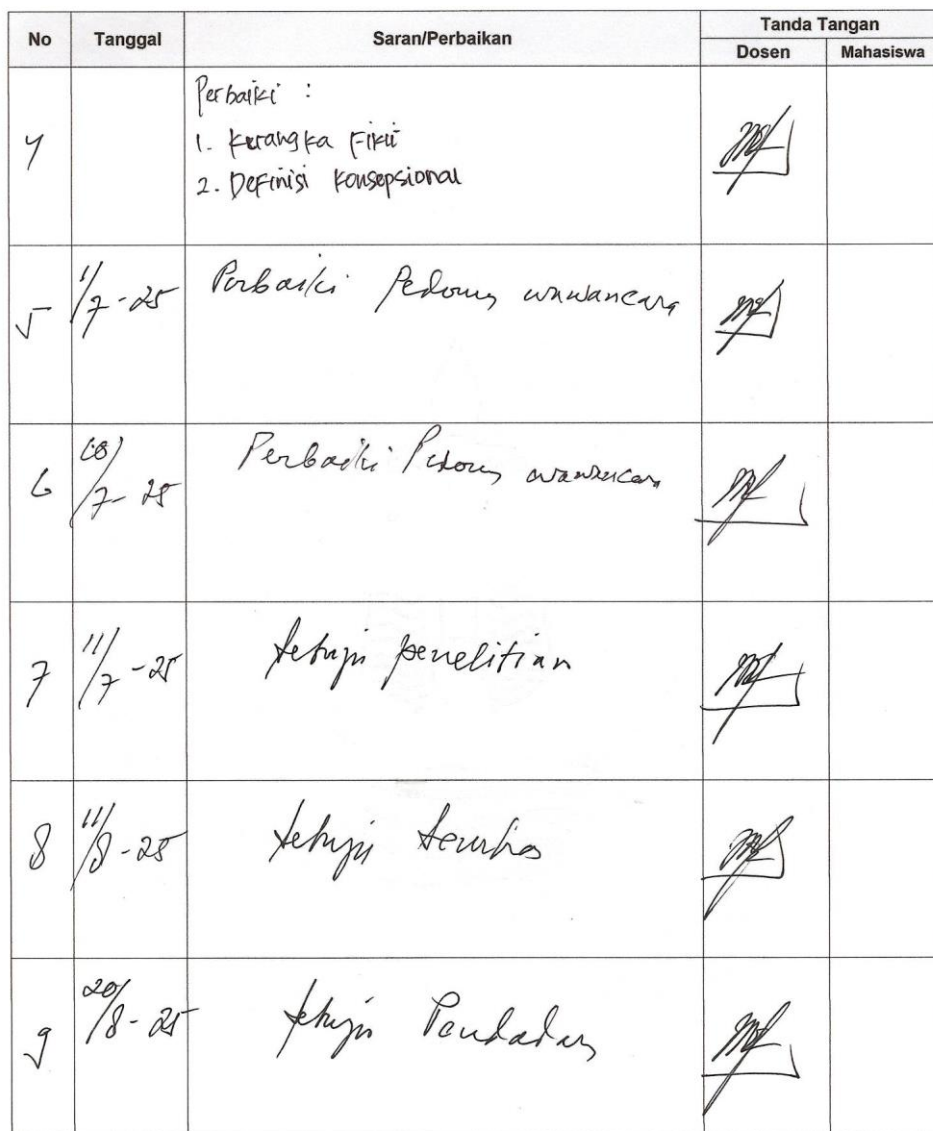 No Tanggal Saran/Perbaikan Tanda Tangan
Dosen Mahasiswa
4
Perbaiki :
1. Kerangka Fikir
2. Definisi Konsepsional
5 1/7-25 Perbaiki Pedoman wawancara
6 /7-25 Perbaiki Pedoman wawancara
7 11/7-25 Setuju penelitian
8 11/8-25 Setuju Semhas
9 20/8-25 Setuju Pendadaran